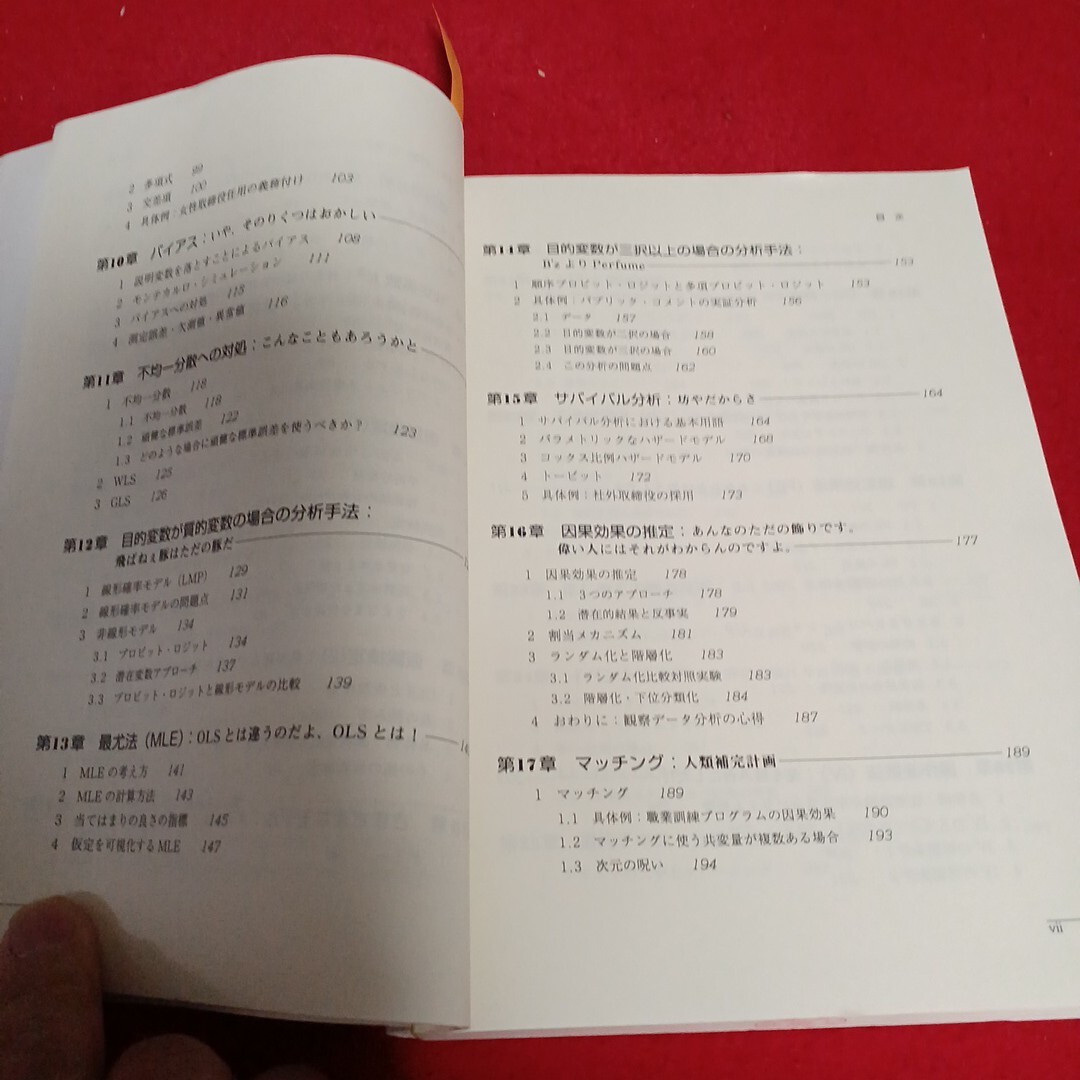 2 多項式 99
3 交差項 100
4 具体例：女性取締役任用の義務付け 103
第10章 バイアス：いや、そのりくつはおかしい
1 説明変数を落とすことによるバイアス 108
2 モンテカルロ・シミュレーション 111
3 バイアスへの対処 115
4 測定誤差・欠測値・異常値 116
第11章 不均一分散への対処：こんなこともあろうかと
1 不均一分散 118
1.1 不均一分散 118
1.2 頑健な標準誤差 122
1.3 どのような場合に頑健な標準誤差を使うべきか？ 123
2 WLS 125
3 GLS 126
第12章 目的変数が質的変数の場合の分析手法：
飛ばねぇ豚はただの豚だ
1 線形確率モデル（LMP） 129
2 線形確率モデルの問題点 131
3 非線形モデル 134
3.1 プロビット・ロジット 134
3.2 潜在変数アプローチ 137
3.3 プロビット・ロジットと線形モデルの比較 139
第13章 最尤法（MLE）：OLSとは違うのだよ、OLSとは！
1 MLEの考え方 141
2 MLEの計算方法 143
3 当てはまりの良さの指標 145
4 仮定を可視化するMLE 147
目 次
第14章 目的変数が三択以上の場合の分析手法：
B'zよりPerfume 153
1 順序プロビット・ロジットと多項プロビット・ロジット 153
2 具体例：パブリック・コメントの実証分析 156
2.1 データ 157
2.2 目的変数が三択の場合 158
2.3 目的変数が三択の場合 160
2.4 この分析の問題点 162
第15章 サバイバル分析：坊やだからさ 164
1 サバイバル分析における基本用語 164
2 パラメトリックなハザードモデル 168
3 コックス比例ハザードモデル 170
4 トービット 172
5 具体例：社外取締役の採用 173
第16章 因果効果の推定：あんなのただの飾りです。
偉い人にはそれがわからんのですよ。 177
1 因果効果の推定 178
1.1 3つのアプローチ 178
1.2 潜在的結果と反事実 179
2 割当メカニズム 181
3 ランダム化と階層化 183
3.1 ランダム化比較対照実験 183
3.2 階層化・下位分類化 184
4 おわりに：観察データ分析の心得 187
第17章 マッチング：人類補完計画 189
1 マッチング 189
1.1 具体例：職業訓練プログラムの因果効果 190
1.2 マッチングに使う共変量が複数ある場合 193
1.3 次元の呪い 194
vii